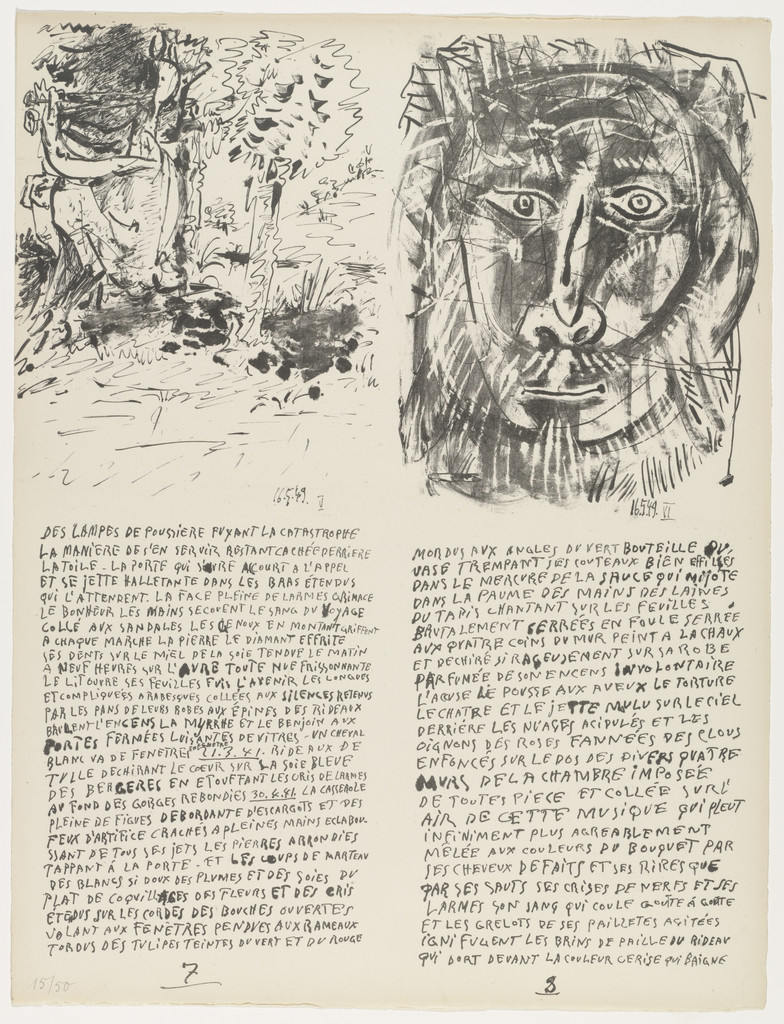 16.5.49. V
DES LAMPES DE POUSSIERE FUYANT LA CATASTROPHE
LA MANIÈRE DE S'EN SERVIR RESTANT CACHÉE DERRIÈRE
LA TOILE - LA PORTE QUI S'OUVRE ACCOURT A L'APPEL
ET SE JETTE HALLETANTE DANS LES BRAS ÉTENDUS
QUI L'ATTENDENT. LA FACE PLEINE DE LARMES GRIMACE
LE BONHEUR LES MAINS SECOUENT LE SANG DU VOYAGE
COLLÉ AUX SANDALES LES GENOUX EN MONTANT GRIFFENT
A CHAQUE MARCHE LA PIERRE LE DIAMANT EFFRITE
SES DENTS SUR LE MIEL DE LA SOIE TENDUE LE MATIN
A NEUF HEURES SUR L' TOUTE NUE FRISSONNANTE
LE LIT OUVRE SES FEUILLES L'AVENIR LES LONGUES
ET COMPLIQUÉES ARABESQUES COLLÉES AUX SILENCES RETENUS
PAR LES PANS DE LEURS ROBES AUX ÉPINES DES RIDEAUX
BRULENT L'ENCENS LA MYRRHE ET LE BENJOIN AUX
PORTES FERMÉES LUISANTES DE VITRES - UN CHEVAL
BLANC VA DE FENETRE EN FENETRE 21.3.41. RIDEAUX DE
TULLE DÉCHIRANT LE CŒUR SUR LA SOIE BLEUE
DES BERGERES EN ETOUFFANT LES CRIS DE LARMES
AU FOND DES GORGES REBONDIES 30.4.41. LA CASSEROLE
PLEINE DE FIGUES DEBORDANTE D'ESCARGOTS ET DES
FEUX D'ARTIFICE CRACHÉS A PLEINES MAINS ECLABOU-
SSANT DE TOUS SES JETS LES PIERRES ARRONDIES
TAPPANT À LA PORTE - ET LES COUPS DE MARTEAU
DES BLANCS SI DOUX DES PLUMES ET DES SOIES DU
PLAT DE COQUILLAGES DES FLEURS ET DES CRIS
ÉTENDUS SUR LES CORDES DES BOUCHES OUVERTES
VOLANT AUX FENETRES PENDUES AUX RAMEAUX
TORDUS DES TULIPES TEINTES DU VERT ET DU ROUGE
7
15/50
16.5.49. VI
MORDUS AUX ANGLES DU VERT BOUTEILLE DU
VASE TREMPANT SES COUTEAUX BIEN EFFILÉS
DANS LE MERCURE DE LA SAUCE QUI MIJOTE
DANS LA PAUME DES MAINS DES LAINES
DU TAPIS CHANTANT SUR LES FEUILLES
BRUTALEMENT SERRÉES EN FOULE SERRÉE
AUX QUATRE COINS DU MUR PEINT A LA CHAUX
ET DÉCHIRÉ SI RAGEUSEMENT SUR SA ROBE
PARFUMÉE DE SON ENCENS INVOLONTAIRE
L'ACUSE LE POUSSE AUX AVEUX LE TORTURE
LE CHATRE ET LE JETTE SUR LE CIEL
DERRIÈRE LES NUAGES ACIDULÉS ET LES
OIGNONS DES ROSES FANNÉES DES CLOUS
ENFONCÉS SUR LE DOS DES DIVERS QUATRE
MURS DE LA CHAMBRE IMPOSÉE
DE TOUTES PIECE ET COLLÉE SUR L'
AIR DE CETTE MUSIQUE QUI PLEUT
INFINIMENT PLUS AGREABLEMENT
MÊLÉE AUX COULEURS DU BOUQUET PAR
SES CHEVEUX DEFAITS ET SES RIRES QUE
PAR SES SAUTS SES CRISES DE NERFS ET SES
LARMES SON SANG QUI COULE GOUTE À GOUTE
ET LES GRELOTS DE SES PAILLETES AGITÉES
IGNIFUGENT LES BRINS DE PAILLE DU RIDEAU
QUI DORT DEVANT LA COULEUR CERISE QUI BAIGNE
8